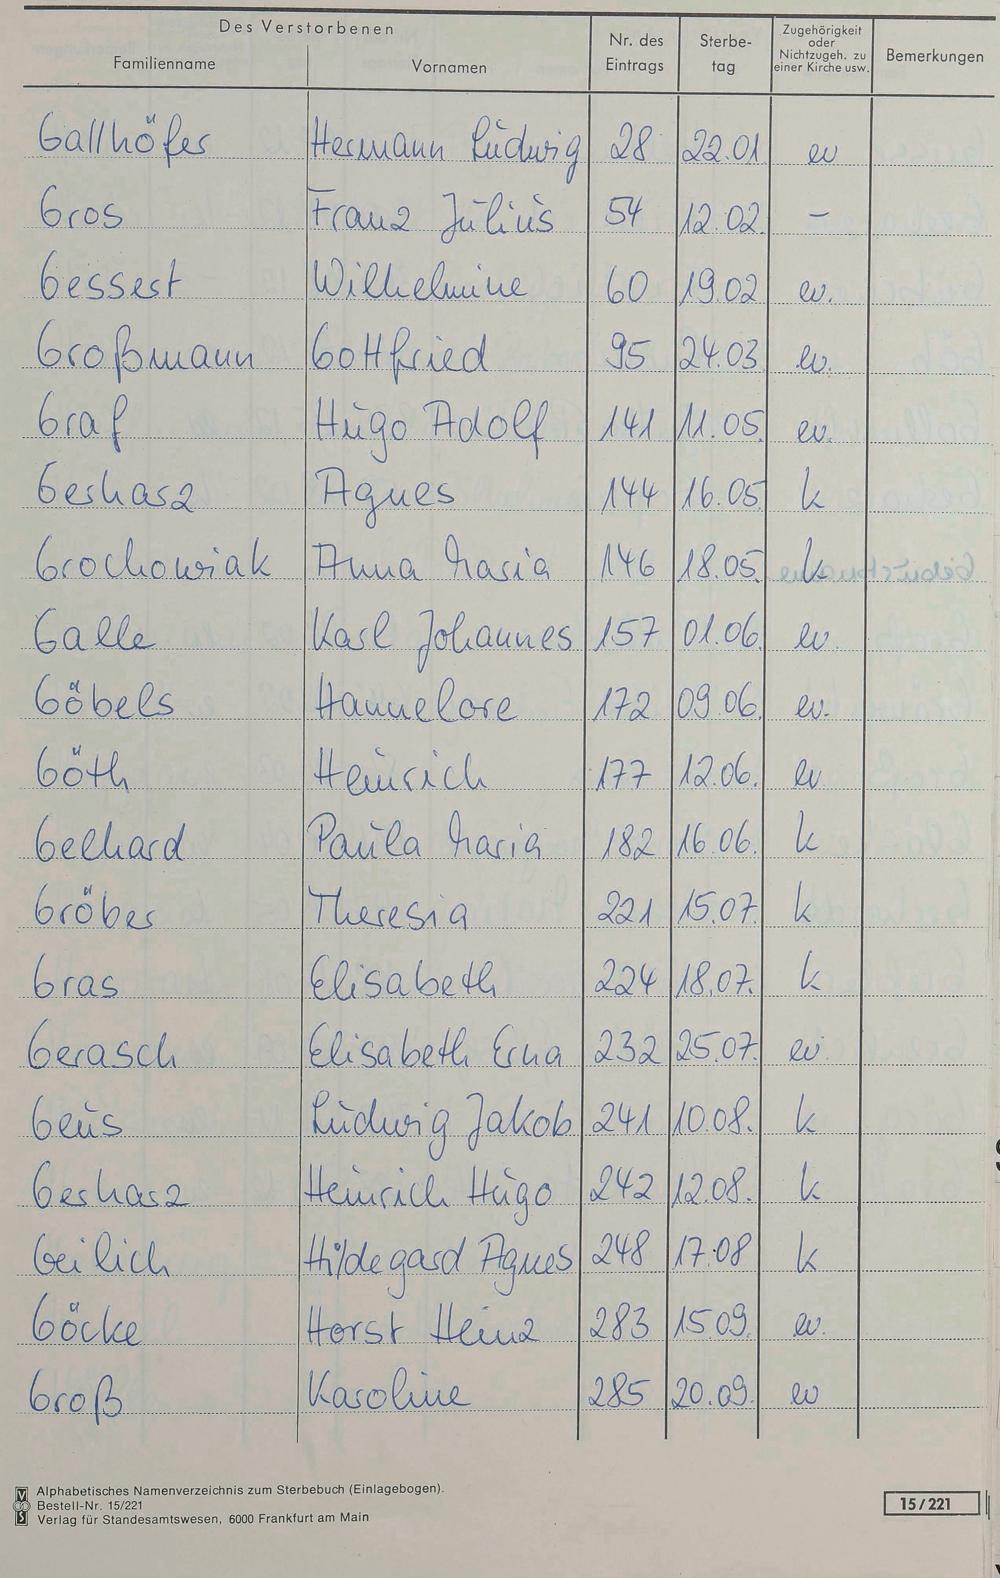 Des Verstorbenen
Familienname Vornamen Nr. des Eintrags Sterbe-tag Zugehörigkeit oder Nichtzugeh. zu einer Kirche usw. Bemerkungen
Gallhöfer Hermann Ludwig 28 22.01 ev
Gros Franz Julius 54 12.02. –
Gessert Wilhelmine 60 19.02 ev.
Großmann Gottfried 95 24.03 ev.
Graf Hugo Adolf 141 11.05. ev.
Gerharz Agnes 144 16.05 k
Grochowiak Anna Maria 146 18.05. k
Galle Karl Johannes 157 01.06. ev.
Göbels Hannelore 172 09.06. ev.
Göth Heinrich 177 12.06. ev
Gelhard Paula Maria 182 16.06. k
Gröber Theresia 221 15.07. k
Gras Elisabeth 224 18.07. k
Gerasch Elisabeth Erna 232 25.07. ev.
Geus Ludwig Jakob 241 10.08. k
Gerharz Heinrich Hugo 242 12.08. k
Geilich Hildegard Agnes 248 17.08 k
Göcke Horst Heinz 283 15.09. ev.
Groß Karoline 285 20.09. ev
Alphabetisches Namenverzeichnis zum Sterbebuch (Einlagebogen).
Bestell-Nr. 15/221
Verlag für Standesamtswesen, 6000 Frankfurt am Main
15/221